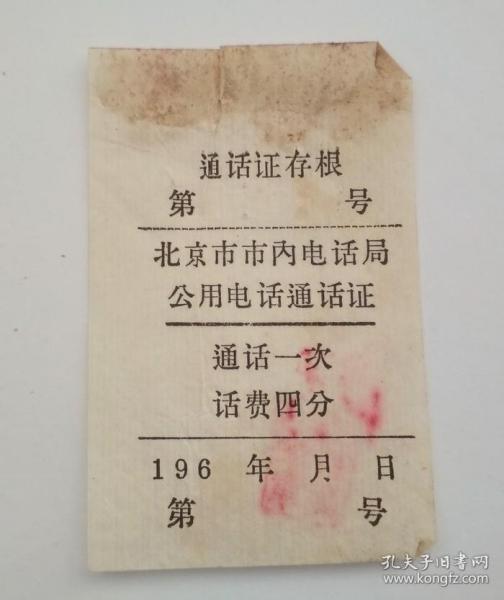 通话证存根
第 号
北京市市内电话局
公用电话通话证
通话一次
话费四分
196 年 月 日
第 号
孔夫子旧书网
www.kongfz.com